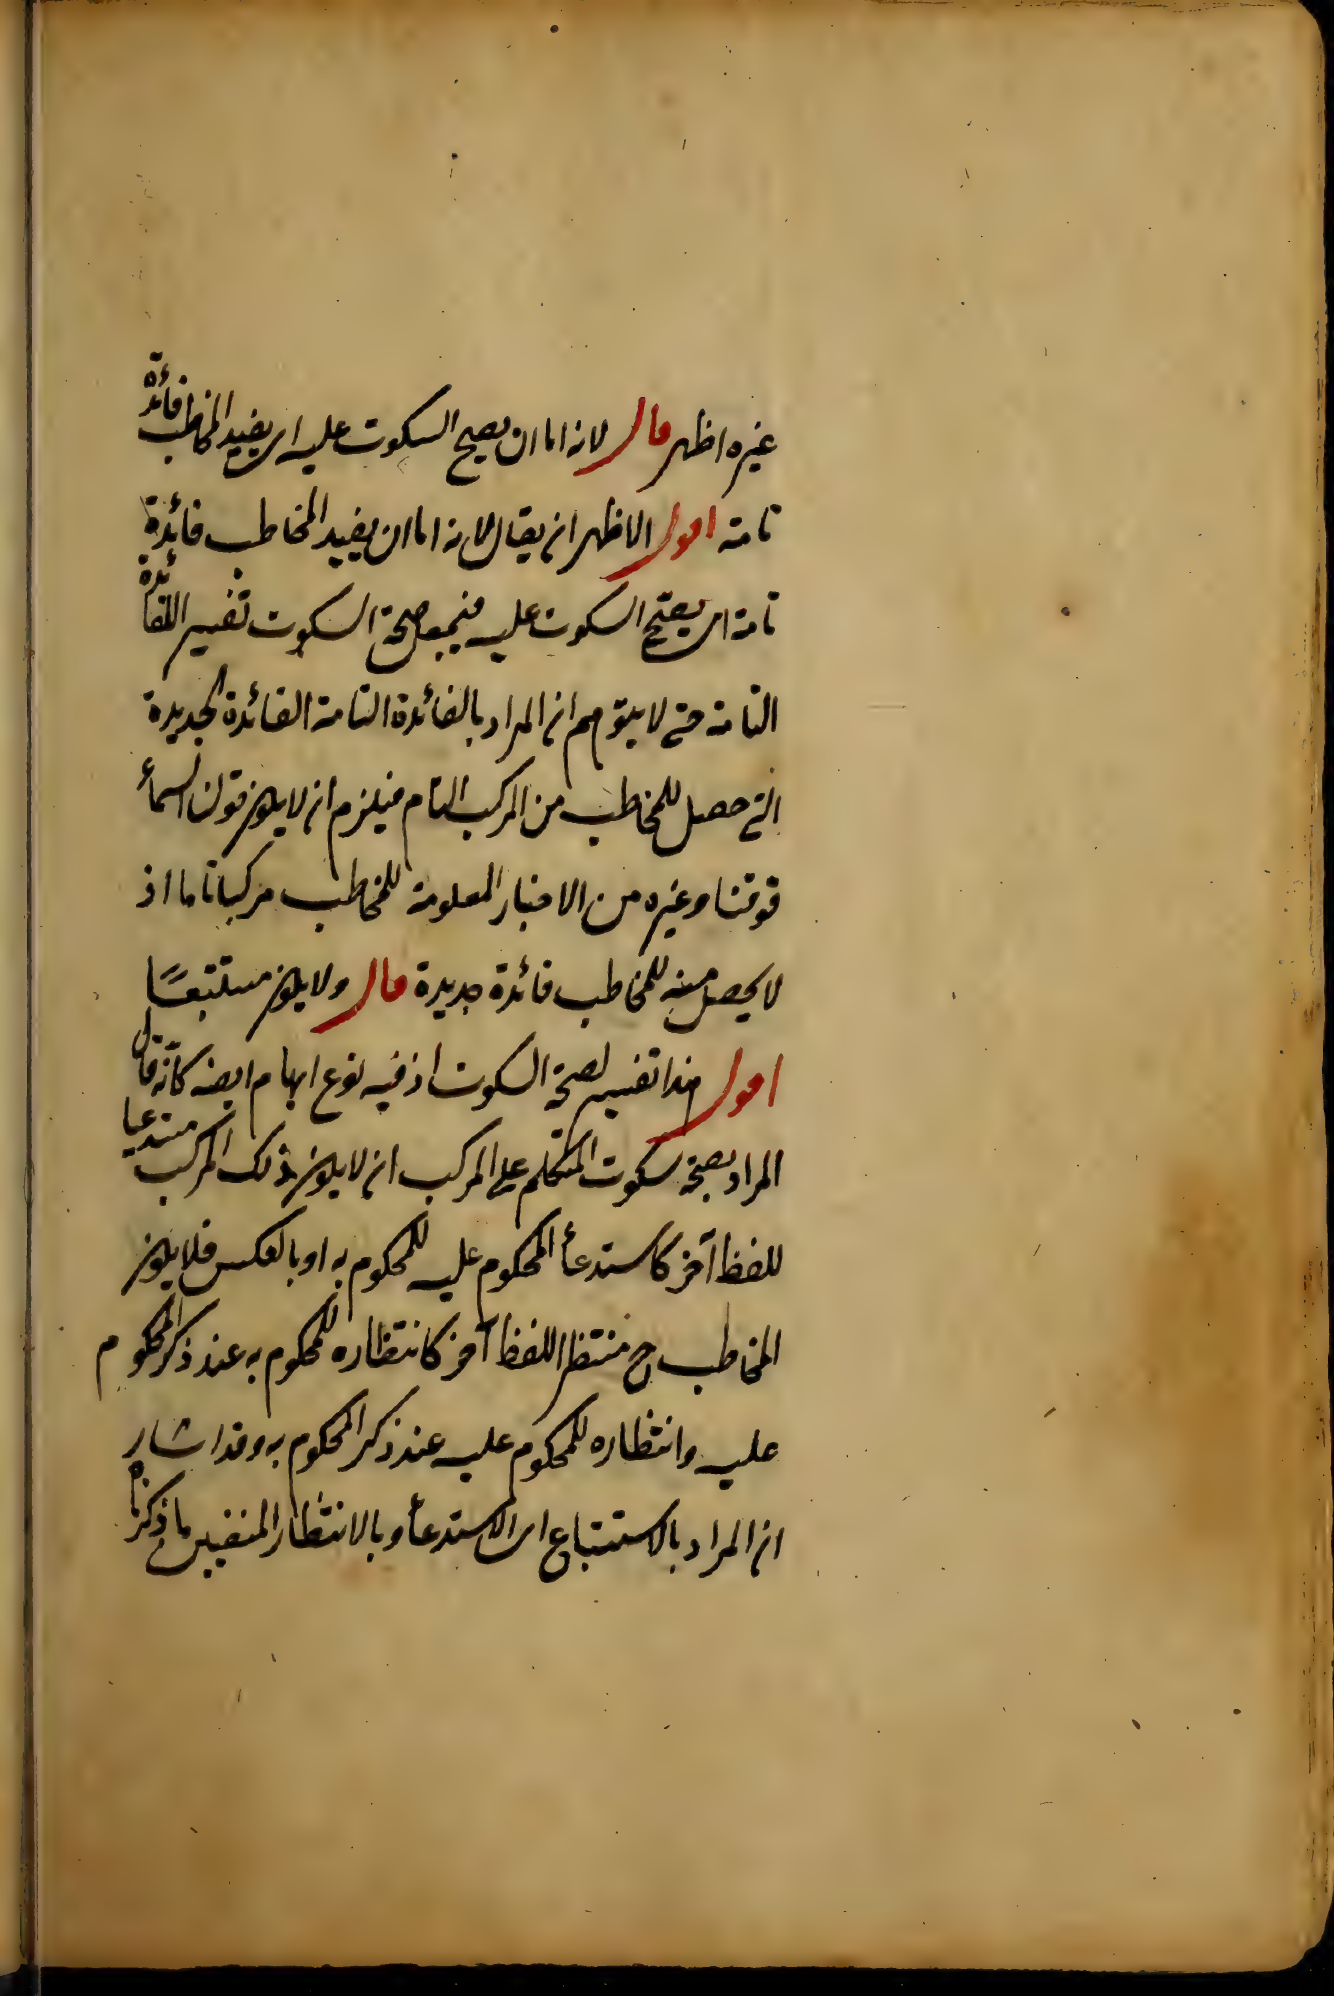 غيره اظهر قال لانه اما ان يصح السكوت عليه اى يفيد المخاطب فائدة
تامة اقول الاظهر ان يقال لانه اما ان يفيد المخاطب فائدة
تامة اى يصح السكوت عليه فيجعل صحة السكوت تفسير اللفائدة
التامة حتى لا يتوهم ان المراد بالفائدة التامة الفائدة الجديدة
التى حصل للمخاطب من المركب التام فيلزم ان لا يكون قولنا السماء
فوقنا وغيره من الاخبار المعلومة للمخاطب مركبا تاما اذ
لا يحصل منه للمخاطب فائدة جديدة قال ولا يكون مستتبعًا
اقول هذا تفسير لصحة السكوت اذ فيه نوع ابهام ايضا كأنه قال
المراد بصحة سكوت المتكلم على المركب ان لا يكون ذلك المركب مستدعيا
للفظ آخر كاستدعأ المحكوم عليه للمحكوم به او بالعكس فلا يكون
المخاطب ح منتظرا للفظ آخر كانتظاره للمحكوم به عند ذكر المحكوم
عليه وانتظاره للمحكوم عليه عند ذكر المحكوم به وقد اشار
ان المراد بالاستتباع اى الاستدعأ وبالانتظار المنفيين ما ذكرناه